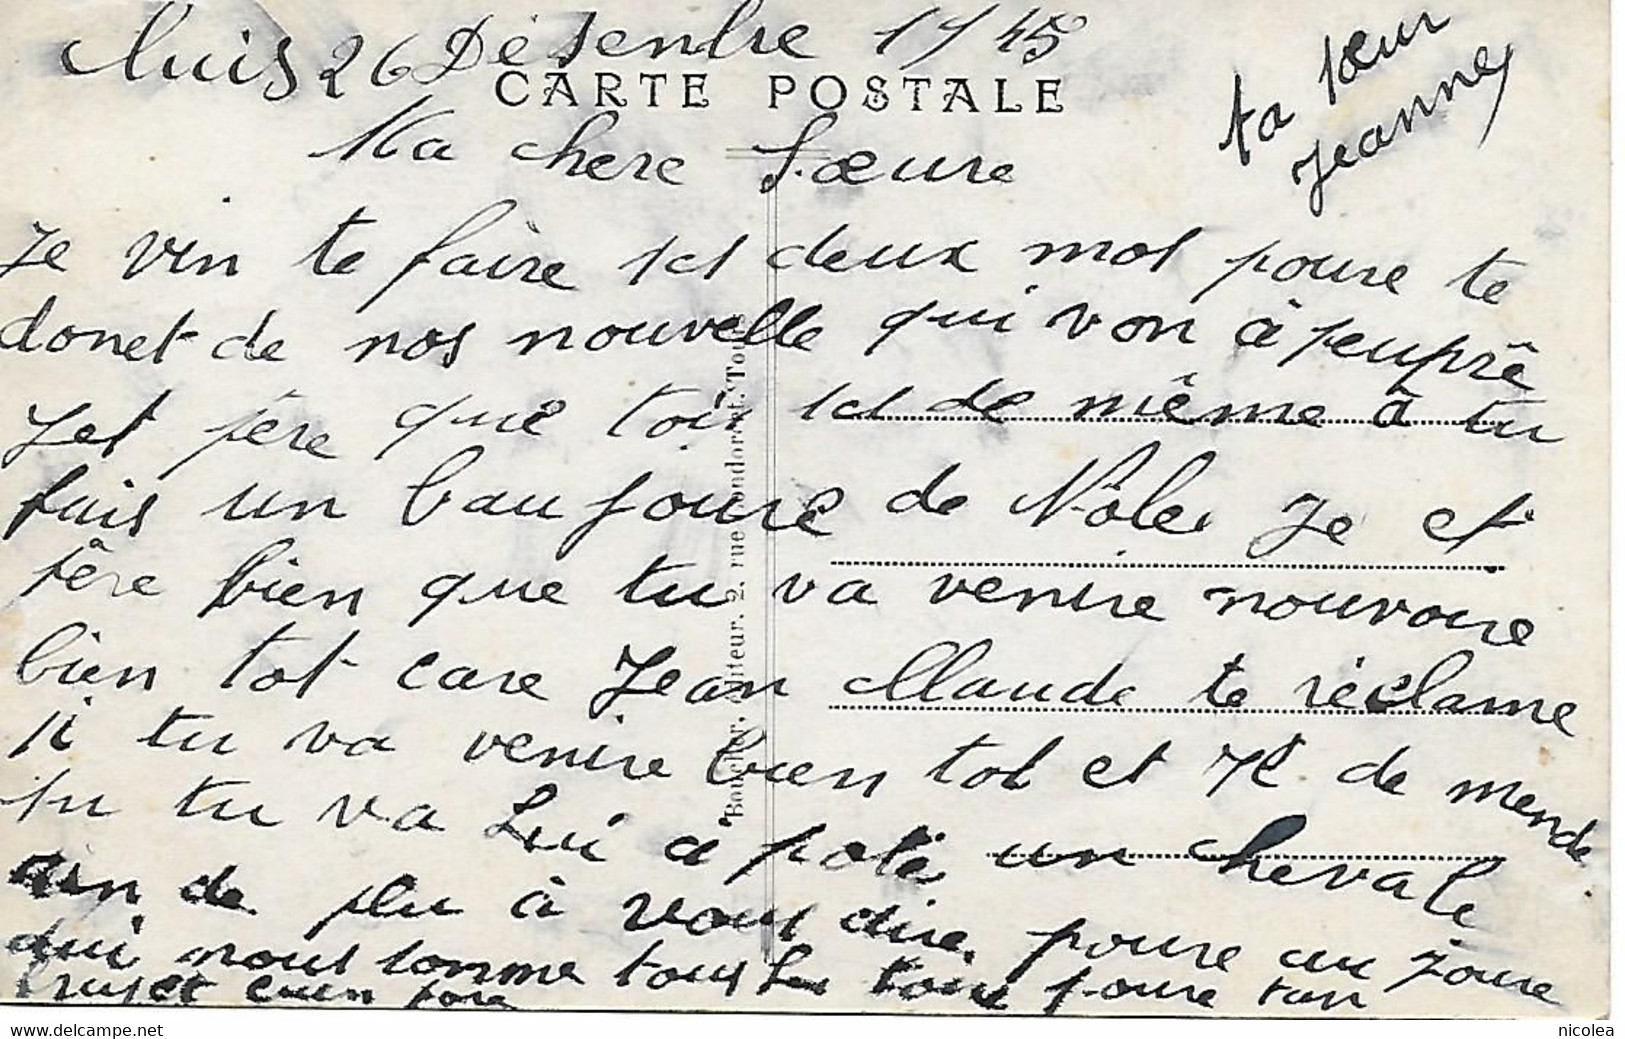 Nuis 26 Désenbre 1945
CARTE POSTALE
ta sœur
Jeanne
Ma chere Sœure
Je vin te faire isi deux mos poure te
donet de nos nouvelle qui von à peuprê
Jes père que toi isi de même à tu
fais un bau joure de Nôle Je es
père bien que tu va venire nouvoire
bien tot care Jean Claude te réclame
si tu va venire bien tot et Il de mende
su tu va Lui a poté un chevale
rien de plu à vous dire poure au joure
dui nous somme tous poure tan
braset bien fore
Boucher. Auditeur. 2. rue ondorcet. Tou
www.delcampe.net
nicolea